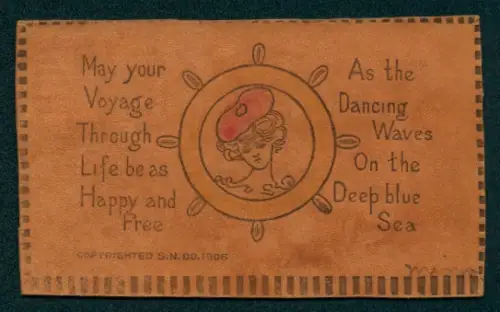 May your
Voyage
Through
Life be as
Happy and
Free
As the
Dancing
Waves
On the
Deep blue
Sea
COPYRIGHTED S.N.CO.1906